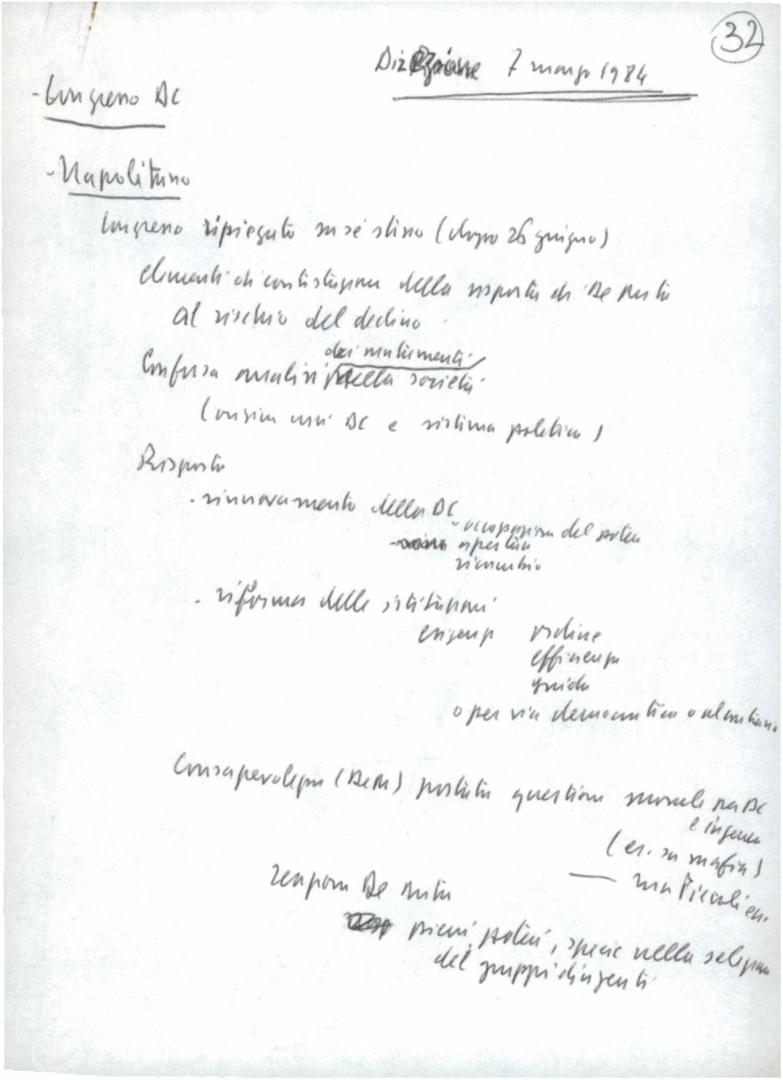 32
Direzione 7 marzo 1984
- Congresso DC
- Napolitano
Congresso ripiegato su sé stesso (dopo 26 giugno)
elementi di contestazione della risposta di De Mita
al rischio del declino
dei mutamenti
Confusa analisi della società
(crisi DC e sistema politico)
Risposta
- rinnovamento della DC
- occupazione del potere
apertura
ricambio
- riforma delle istituzioni
esigenza ordine
efficienza
guida
o per via democratica o autoritaria
Consapevolezza (DeM) portata questione morale DC
e ingerenza
(es. su mafia)
— ma Piccoli ecc.
De Mita
pieni poteri, specie nella selezione
dei gruppi dirigenti